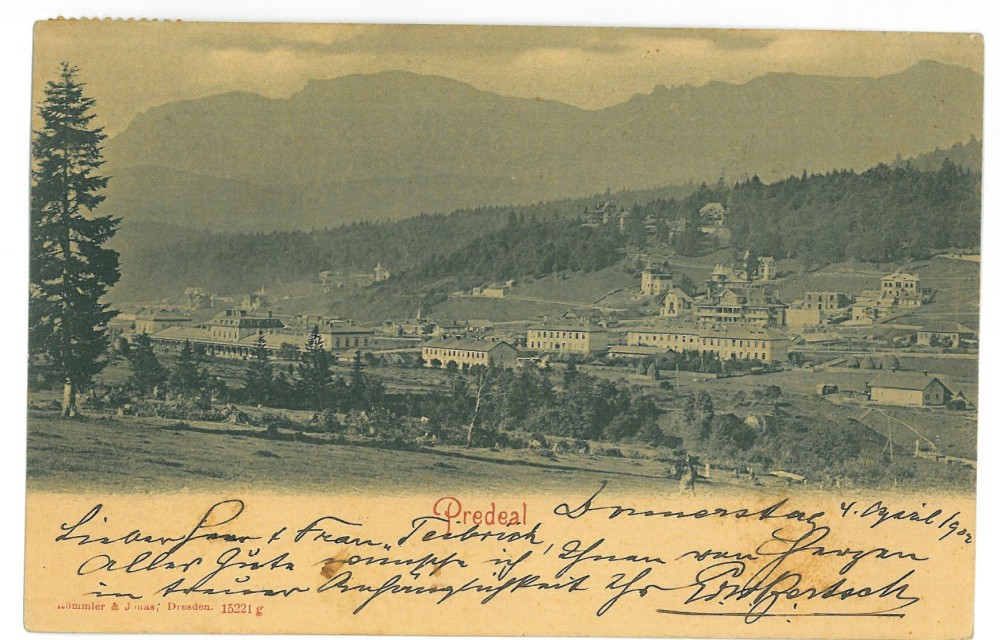 Predeal
Donnerstag 4. April 1902
Lieber Herr & Frau
Alles Gute wünsche ich Ihnen von Herzen
in treuer Anhänglichkeit Ihr
Römmler & Jonas, Dresden. 15221 g